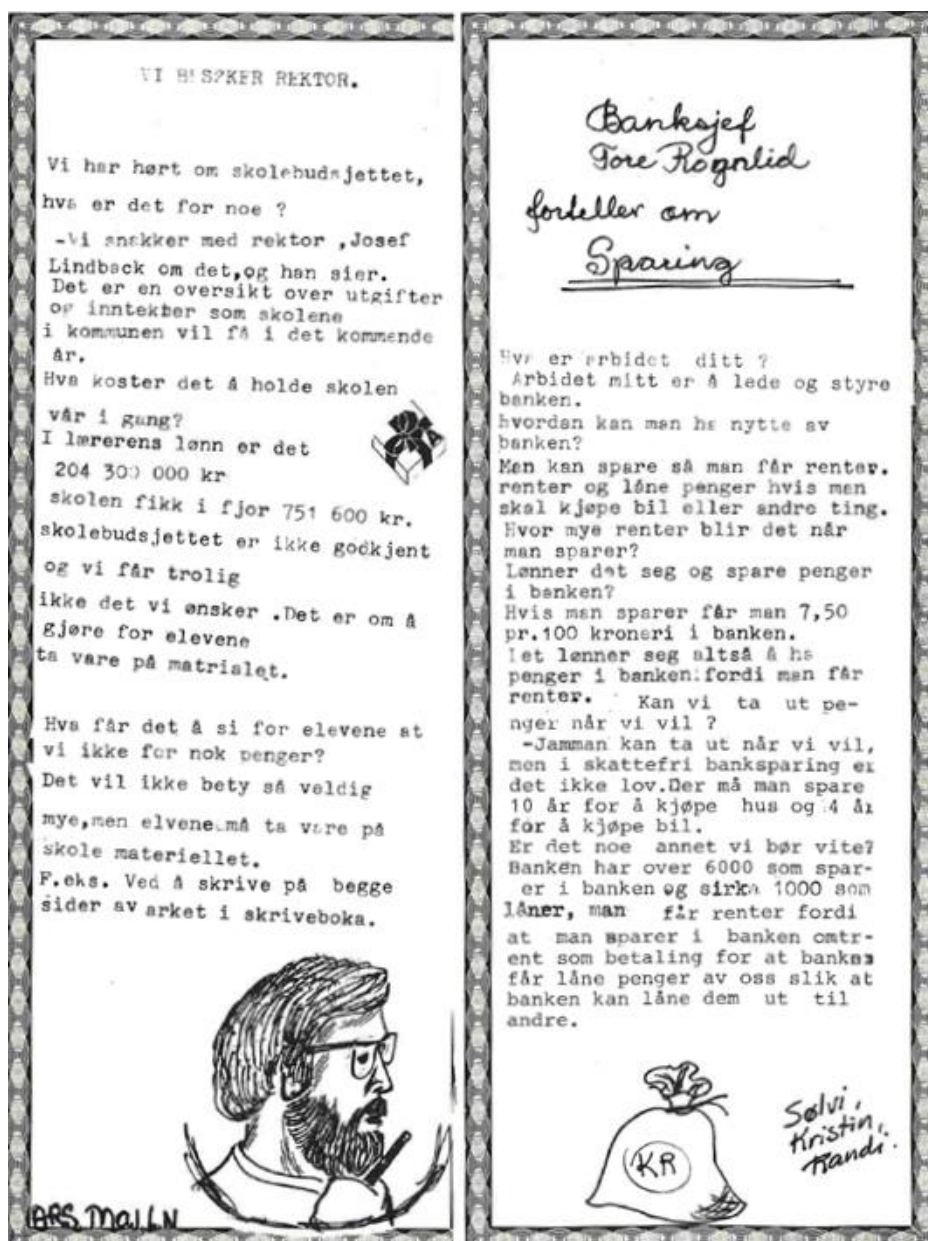 VI BESØKER REKTOR.
Vi har hørt om skolebudsjettet,
hva er det for noe ?
-Vi snakker med rektor ,Josef
Lindback om det,og han sier.
Det er en oversikt over utgifter
og inntekter som skolene
i kommunen vil få i det kommende
år.
Hva koster det å holde skolen
vår i gang?
I lærerens lønn er det
204 300 000 kr
skolen fikk i fjor 751 600 kr.
skolebudsjettet er ikke godkjent
og vi får trolig
ikke det vi ønsker .Det er om å
gjøre for elevene
ta vare på matrialet.
Hva får det å si for elevene at
vi ikke for nok penger?
Det vil ikke bety så veldig
mye,men elvene må ta vare på
skole materiellet.
F.eks. Ved å skrive på begge
sider av arket i skriveboka.
Banksjef
Tore Rognlid
forteller om
Sparing
Hva er arbidet ditt ?
Arbidet mitt er å lede og styre
banken.
hvordan kan man ha nytte av
banken?
Man kan spare så man får renter.
renter og låne penger hvis man
skal kjøpe bil eller andre ting.
Hvor mye renter blir det når
man sparer?
Lønner det seg og spare penger
i banken?
Hvis man sparer får man 7,50
pr.100 kroneri i banken.
Det lønner seg altså å ha
penger i banken fordi man får
renter. Kan vi ta ut pe-
nger når vi vil ?
-Jamman kan ta ut når vi vil,
men i skattefri banksparing er
det ikke lov.Der må man spare
10 år for å kjøpe hus og 4 år
for å kjøpe bil.
Er det noe annet vi bør vite?
Banken har over 6000 som spar-
er i banken og sirka 1000 som
låner, man får renter fordi
at man sparer i banken omtr-
ent som betaling for at banken
får låne penger av oss slik at
banken kan låne dem ut til
andre.
KR
Sølvi,
Kristin,
Randi.